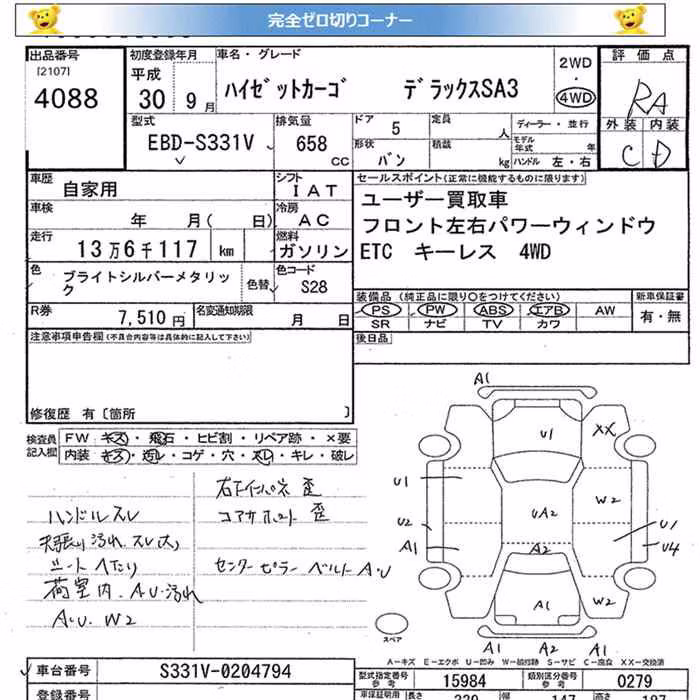 完全ゼロ切りコーナー
出品番号
[2107]
4088
初度登録年月
平成
30年 9月
車名・グレード
ハイゼットカーゴ デラックスSA3
2WD
・
4WD
評価点
RA
外装 内装
C D
型式
EBD-S331V
排気量
658
CC
ドア
5
定員
人
ディーラー・並行
モデル年式 年
形状
バン
積載
kg
ハンドル 左・右
車歴
自家用
シフト
IAT
車検
年 月( 日)
冷房
AC
走行
13万6千117 km
燃料
ガソリン
色
ブライトシルバーメタリック
色替
色コード
S28
R券
7,510円
名変通知期限
月 日
セールスポイント(正常に機能するものに限ります)
ユーザー買取車
フロント左右パワーウィンドウ
ETC キーレス 4WD
装備品 (純正品に限り○をつけてください)
PS PW ABS エアB AW
SR ナビ TV カワ
新車保証書
有・無
後日品
注意事項申告欄(不具合内容等は具体的に記入して下さい)
修復歴 有〔箇所 〕
検査員記入欄
FW・キズ・飛石・ヒビ割・リペア跡・×要
内装・キズ・汚レ・コゲ・穴・スレ・キレ・破レ
右下インパネ 歪
コアサポート 歪
ハンドルスレ
天張り汚れ.スレ大
シートヘたり
荷室内.AU.汚れ
AU. W2
センターピラー ベルトAU
A1
U1
XX
U1
W2
UA2
U2
U1
A1
A2
U4
A1
W2
A1 A2 A1
スペア
A-キズ E-エクボ U-凹み W-補修跡 S-サビ C-腐食 XX-交換済
車台番号
S331V-0204794
型式指定番号
参考
15984
類別区分番号
参考
0279
登録番号
車庫証明用
長さ